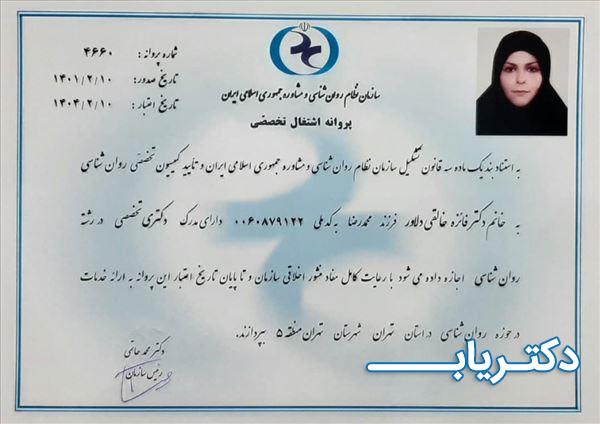 شماره پروانه : ۴۶۶۰
تاریخ صدور: ۱۴۰۱/۲/۱۰
تاریخ اعتبار : ۱۴۰۴/۲/۱۰
سازمان نظام روان شناسی و مشاوره جمهوری اسلامی ایران
پروانه اشتغال تخصصی
به استناد بند یک ماده سه قانون تشکیل سازمان نظام روان شناسی و مشاوره جمهوری اسلامی ایران و تأیید کمیسیون تخصصی روان شناسی
به خانم دکتر فائزه خالقی دلاور فرزند محمدرضا به کد ملی ۰۰۶۰۸۷۹۱۲۲ دارای مدرک دکتری تخصصی در رشته
روان شناسی اجازه داده می شود با رعایت کامل مفاد منشور اخلاقی سازمان و تا پایان تاریخ اعتبار این پروانه به ارائه خدمات
در حوزه روان شناسی در استان تهران شهرستان تهران منطقه ۵ بپردازند.
دکتر محمد حاتمی
رئیس سازمان
دکتریاب